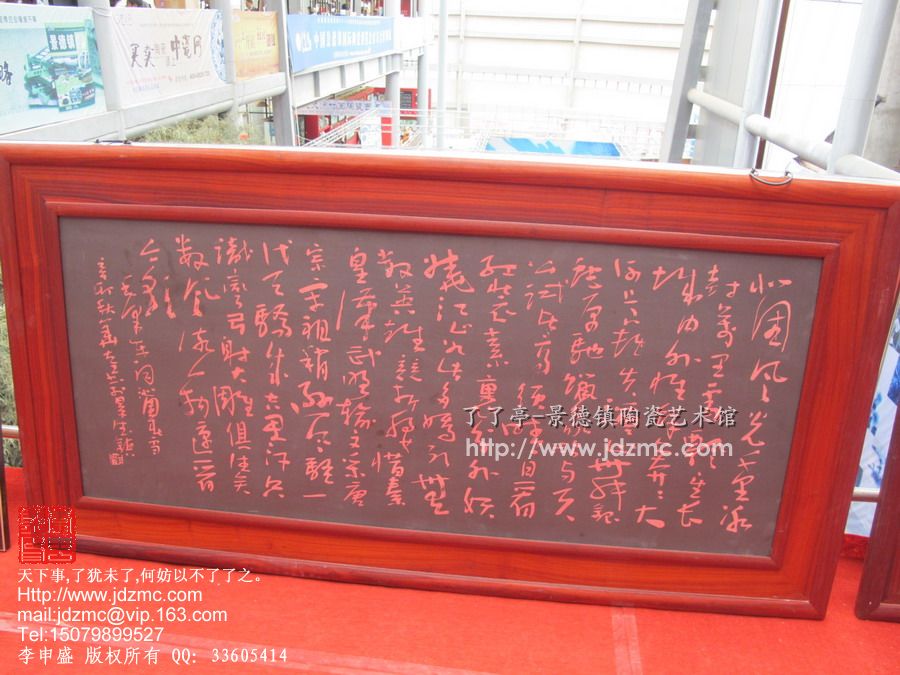 北國风光千里冰
封萬里雪飘望长
城内外惟余莽莽大
河上下顿失滔滔山舞银
蛇原驰蜡象欲与天
公试比高须晴日看
红装素裹分外妖
娆江山如此多娇引无
数英雄竞折腰惜秦
皇漢武略输文采唐
宗宋祖稍逊风骚一
代天骄成吉思汗只
识弯弓射大雕俱往矣
数风流人物还看
今朝
毛泽东词沁园春雪
买卖陶瓷上中瓷网
景德镇
了了亭-景德镇陶瓷艺术馆
www.jdzmc.com
天下事,了犹未了,何妨以不了了之。
Http://www.jdzmc.com
mail:jdzmc@vip.163.com
Tel:15079899527
李申盛 版权所有 QQ: 33605414